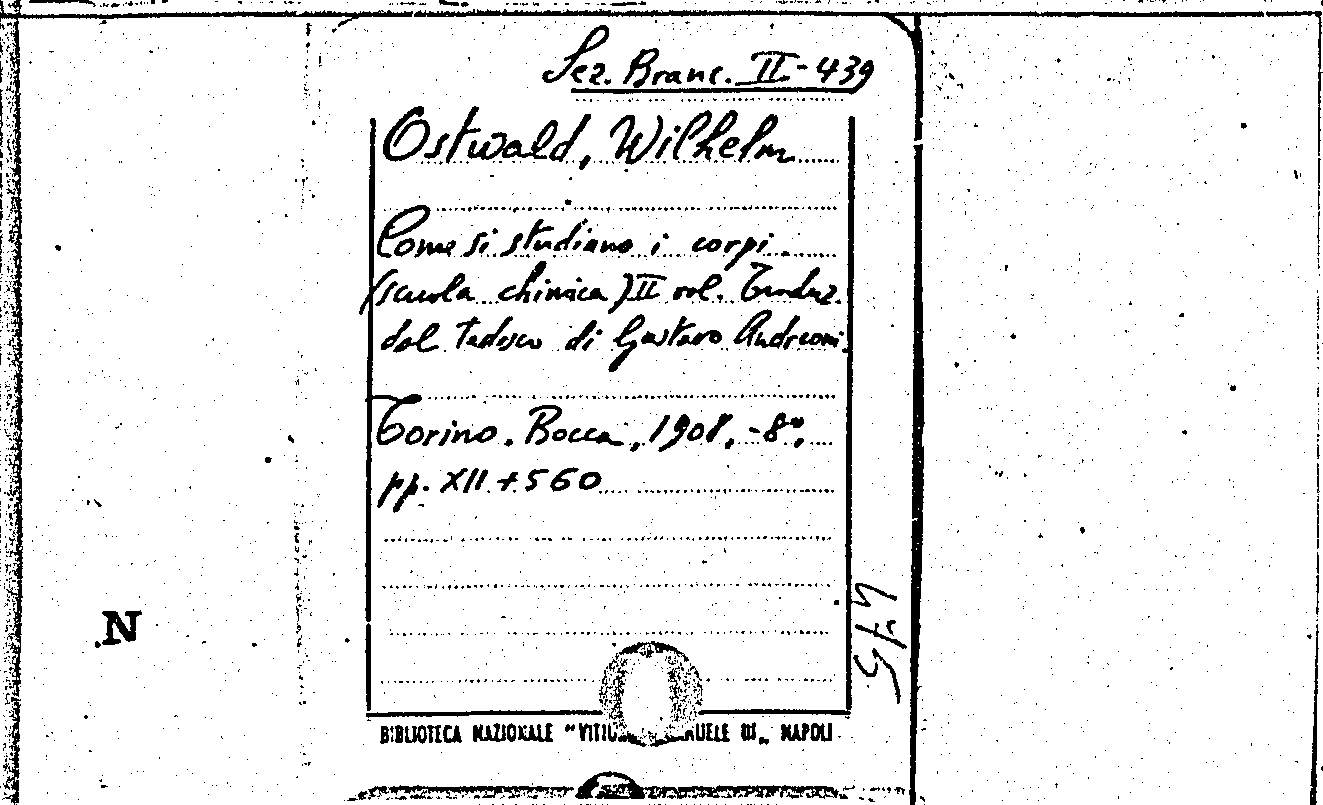 Sez. Branc. II - 439
Ostwald, Wilhelm
Come si studiano i corpi
(scuola chimica) II vol. Traduz.
dal tedesco di Gustavo Andreoni.
Torino. Bocca, 1908. - 8º.
pp. XII + 560
N
BIBLIOTECA NAZIONALE "VITTO UELE III„ NAPOLI